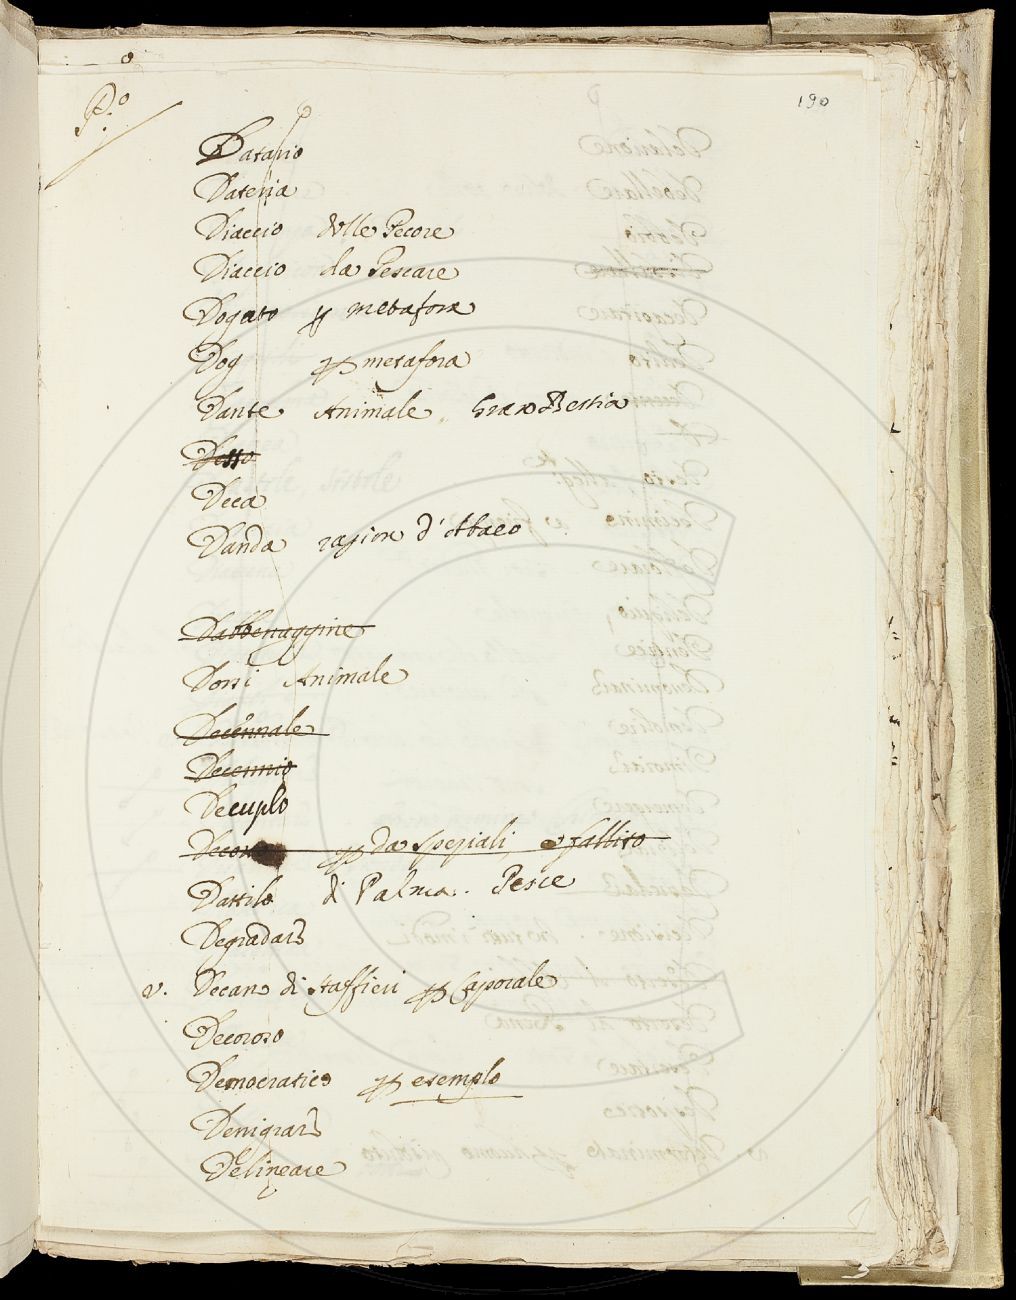 P.º
190
Datario
Dateria
Diaccio delle Pecore
Diaccio da Pescare
Dogato p metafora
Dog p metafora
Dante Animale Gran Bestia
Desso
Deca
Danda ragion d'Abaco
Dabbenaggine
Dorsi Animale
Decennale
Decennio
Decuplo
p da speziali e fallito
Dattilo di Palma. Pesce
Degradare
v. Decano di staffieri p Caporale
Decoroso
Democratico p esemplo
Denigrare
Delineare